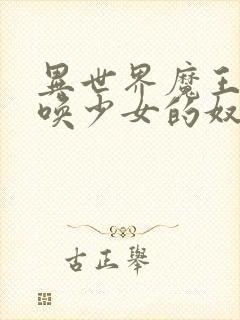 異世界魔王
喚少女的奴
古正舉